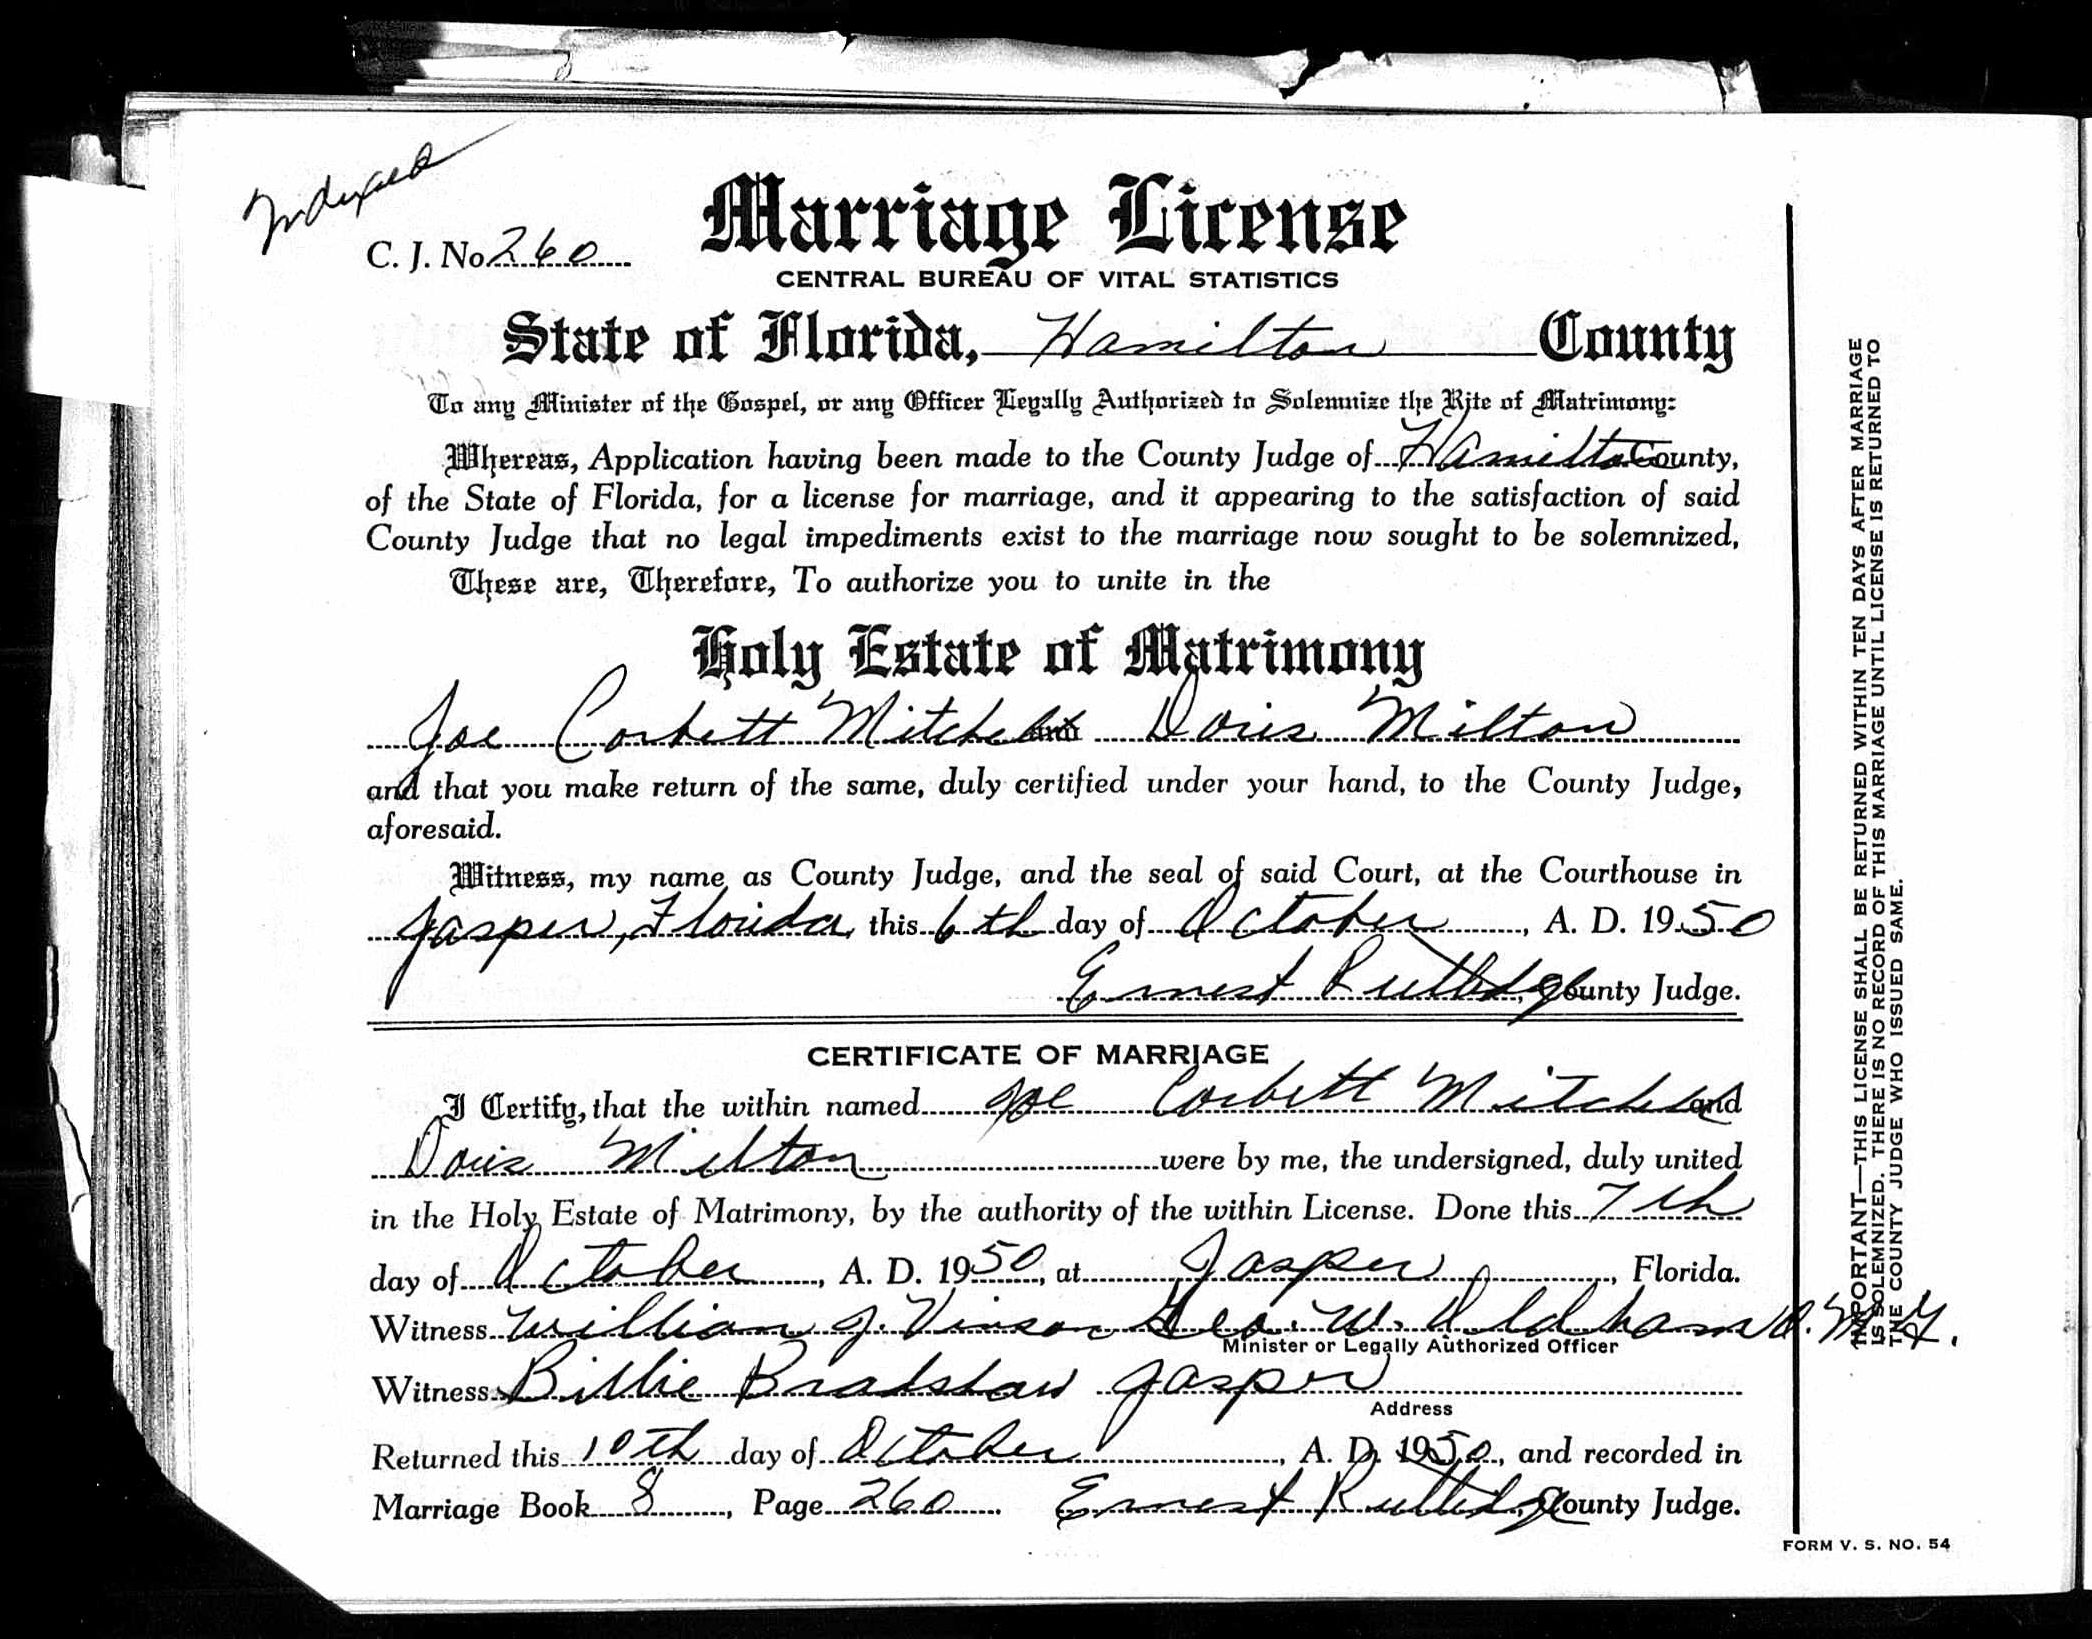 Indexed
C. J. No. 260
Marriage License
CENTRAL BUREAU OF VITAL STATISTICS
State of Florida, Hamilton County
To any Minister of the Gospel, or any Officer Legally Authorized to Solemnize the Rite of Matrimony:
Whereas, Application having been made to the County Judge of Hamilton County,
of the State of Florida, for a license for marriage, and it appearing to the satisfaction of said
County Judge that no legal impediments exist to the marriage now sought to be solemnized,
These are, Therefore, To authorize you to unite in the
Holy Estate of Matrimony
Joe Corbett Mitchell and Doris Milton
and that you make return of the same, duly certified under your hand, to the County Judge,
aforesaid.
Witness, my name as County Judge, and the seal of said Court, at the Courthouse in
Jasper, Florida, this 6th day of October, A. D. 1950
Ernest Rutledge, County Judge.
CERTIFICATE OF MARRIAGE
I Certify, that the within named Joe Corbett Mitchell and
Doris Milton were by me, the undersigned, duly united
in the Holy Estate of Matrimony, by the authority of the within License. Done this 7th
day of October, A. D. 1950, at Jasper, Florida.
Witness William J. Vinson Geo. W. Oldham
Minister or Legally Authorized Officer
Witness Billie Bradshaw Jasper
Address
Returned this 10th day of October, A. D. 1950, and recorded in
Marriage Book 8, Page 260 Ernest Rutledge, County Judge.
IMPORTANT—THIS LICENSE SHALL BE RETURNED WITHIN TEN DAYS AFTER MARRIAGE
IS SOLEMNIZED. THERE IS NO RECORD OF THIS MARRIAGE UNTIL LICENSE IS RETURNED TO
THE COUNTY JUDGE WHO ISSUED SAME.
FORM V. S. NO. 54